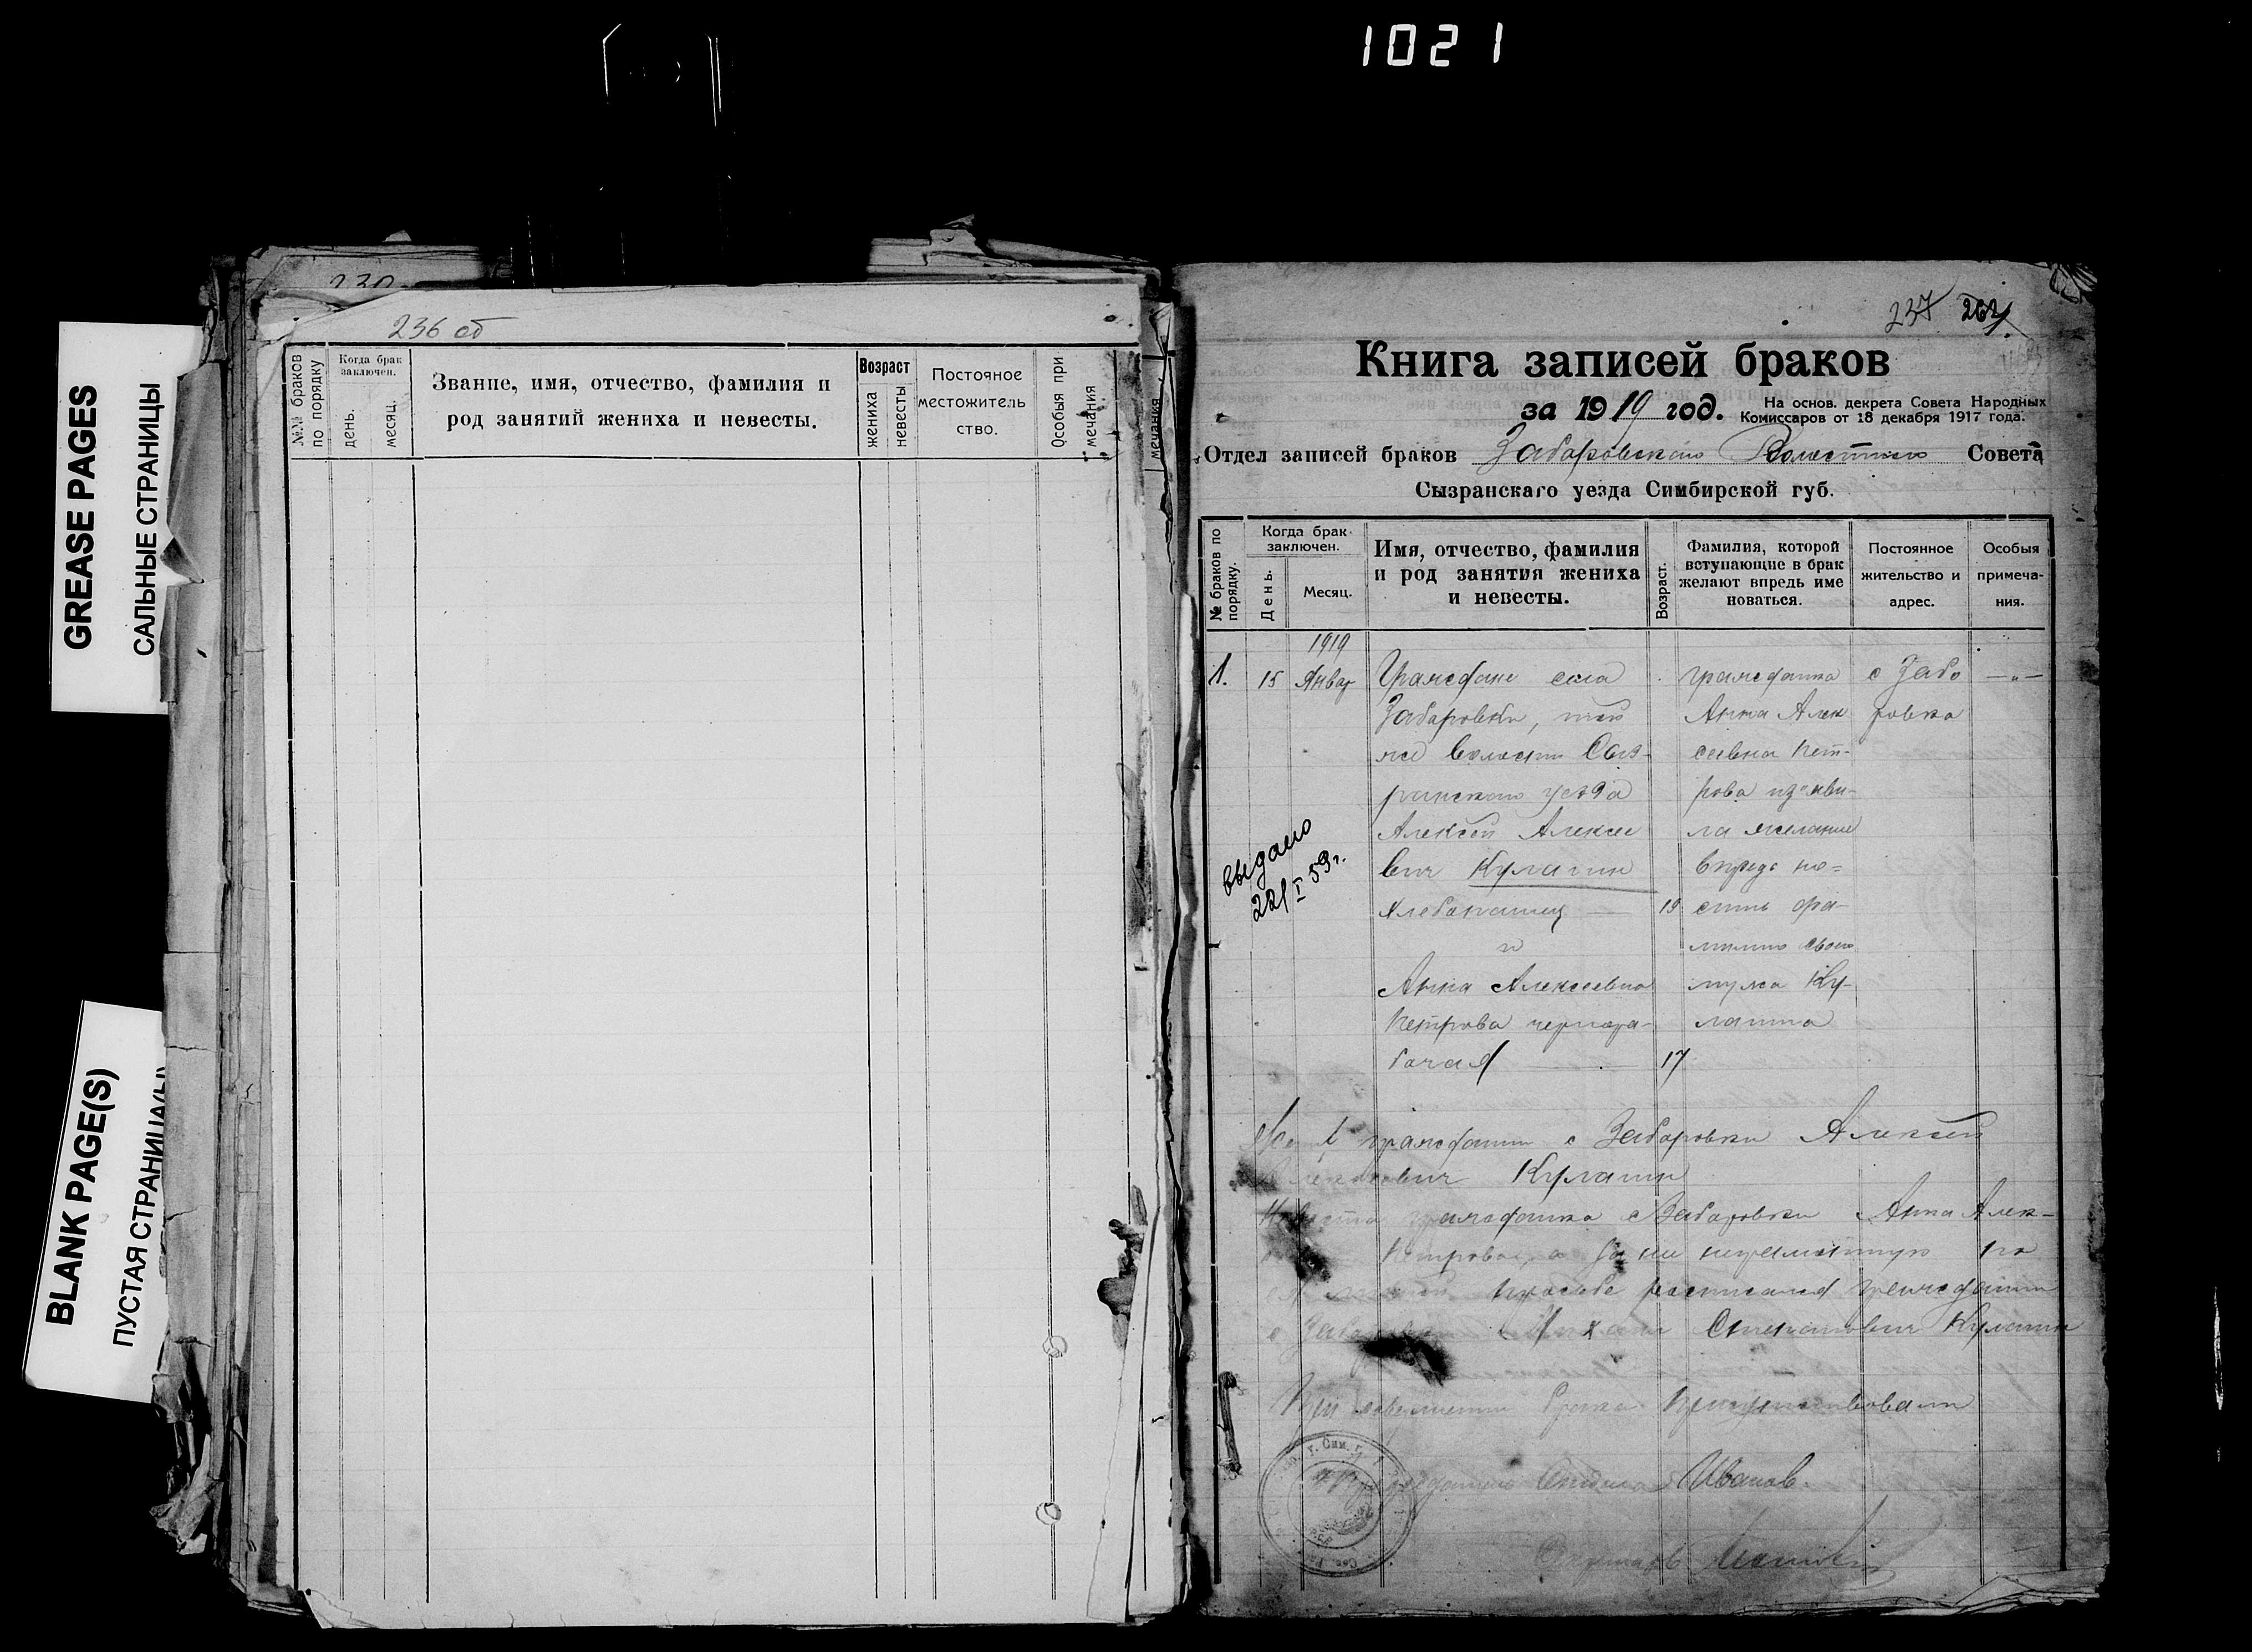 1021
GREASE PAGES
САЛЬНЫЕ СТРАНИЦЫ
BLANK PAGE(S)
ПУСТАЯ СТРАНИЦА(Ы)
230
236 об
№№ браков по порядку
Когда брак заключен.
день.
месяц.
Звание, имя, отчество, фамилия и
род занятий жениха и невесты.
Возраст
жениха
невесты
Постояное
местожитель
ство.
Особыя при
мечания.
мечания
237 264
Книга записей браков
за 1919 год.
На основ. декрета Совета Народных
Комиссаров от 18 декабря 1917 года.
Отдел записей браков Заборовского Волостного Совета
Сызранскаго уезда Симбирской губ.
№ браков по порядку.
Когда брак
заключен.
День.
Месяц.
Имя, отчество, фамилия
и род занятия жениха
и невесты.
Возраст.
Фамилия, которой
вступающие в брак
желают впредь име
новаться.
Постоянное
жительство и
адрес.
Особыя
примеча-
ния.
1919
1. 15 Январ
Граждане села
Заборовки, той
же волости Сыз-
ранского уезда
Алексей Алексее
вич Кулагин
Хлебопашец 19
и
Анна Алексеевна
Петрова чернора-
бочая 17
гражданка
Анна Алек
сеевна Пет-
рова из'яви-
ла желание
впредь но-
сить фа-
милию своего
мужа Ку-
лагина
с Забо
ровка
—"—
выдано
22/I 59г.
гражданин с Заборовки Алексей
Алексеевич Кулагин
Невеста гражданка с Заборовки Анна Алек-
Петрова, а за не грамотную по
просьбе росписался гражданин
с Степанович Кулагин
При совершении брака присутствовали
Отдела Иванов.
Секретарь